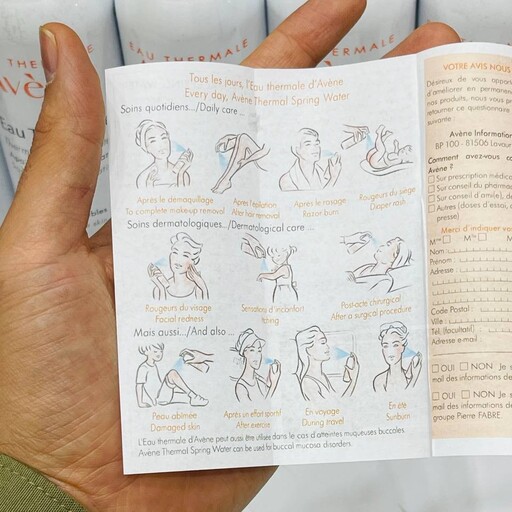 EAU THERMALE
Avène
Tous les jours, l'Eau thermale d'Avène
Every day, Avène Thermal Spring Water
Soins quotidiens.../Daily care ...
Après le démaquillage
To complete make-up removal
Après l'épilation
After hair removal
Après le rasage
Razor burn
Rougeurs du siège
Diaper rash
Soins dermatologiques.../Dermatological care ...
Rougeurs du visage
Facial redness
Sensations d'inconfort
Itching
Post-acte chirurgical
After a surgical procedure
Mais aussi.../And also ...
Peau abîmée
Damaged skin
Après un effort sportif
After exercise
En voyage
During travel
En été
Sunburn
L'Eau thermale d'Avène peut aussi être utilisée dans le cas d'atteintes muqueuses buccales.
Avène Thermal Spring Water can be used for buccal mucosa disorders.
VOTRE AVIS NOUS
Désireux de vous
d'améliorer en
nos produits, nous vous
retourner ce questionnaire
suivante
Avène Information
BP 100 - 81506 Lavaur
Comment avez-vous
Avène ?
Sur prescription
Sur conseil du
Sur conseil d'ami(e),
Autres (doses d'essai,
presse)
Merci d'indiquer
Mme Mlle M
Nom :
Prénom :
Adresse :
Code Postal :
Ville :
Tél. (facultatif)
Adresse e-mail
OUI NON Je
mail des informations de
OUI NON Je
mail des informations de
groupe Pierre FABRE.